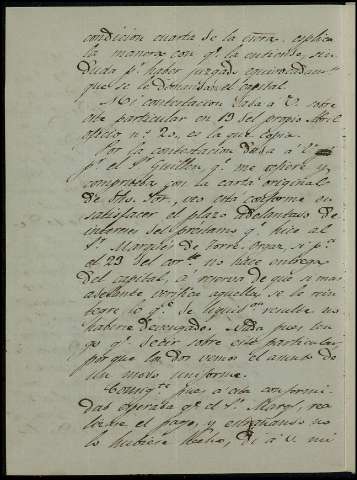 condicion cuarta de la citra. esplica
la manera con qe. la entiende, sin
duda pr. haber juzgado equivocadamte.
que se le demandava el capital.
Mi contestacion dada a V. sobre
este particular en 13 del propio Abril
oficio no. 20, es la que copia.
Por la contestacion dada a V.
pr. el Sr. Guillen, qe. me refiere y
comprueba con la carta original
de dho. Sor., veo esta conforme en
satisfacer el plazo adelantado de
interes del prestamo qe. hizo al
Sr. Marqués de Torre
el 23 del corte. no hace entrega
del capital, a reserva de que si mas
adelante verifica aquella, se le rein
tegre lo qe. de liquidon. resulte no
haberse devengado. Nada pues ten
go qe. decir sobre este particular,
porque los dos vemos el asunto de
un modo uniforme.
Consigte. pues a esta conformi
dad esperaba qe. el Sr. Marqs. rea
lizase el pago, y estrañando no
lo hubiese hecho, di a V. mi